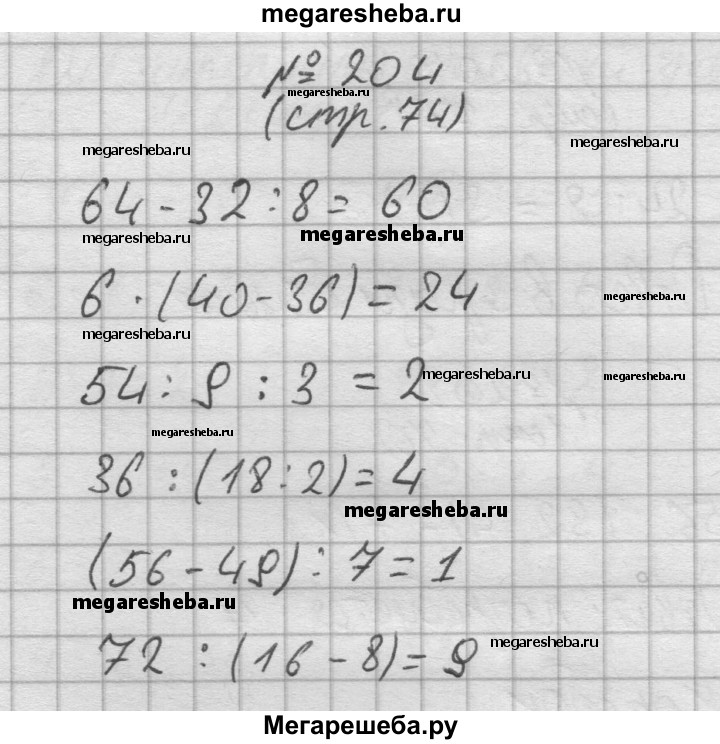 megaresheba.ru
№ 204
megaresheba.ru
(стр. 74)
megaresheba.ru
megaresheba.ru
64 - 32 : 8 = 60
megaresheba.ru
megaresheba.ru
6 · (40 - 36) = 24
megaresheba.ru
megaresheba.ru
54 : 9 : 3 = 2
megaresheba.ru
megaresheba.ru
megaresheba.ru
36 : (18 : 2) = 4
megaresheba.ru
(56 - 49) : 7 = 1
megaresheba.ru
72 : (16 - 8) = 9
megaresheba.ru
Мегарешеба.ру